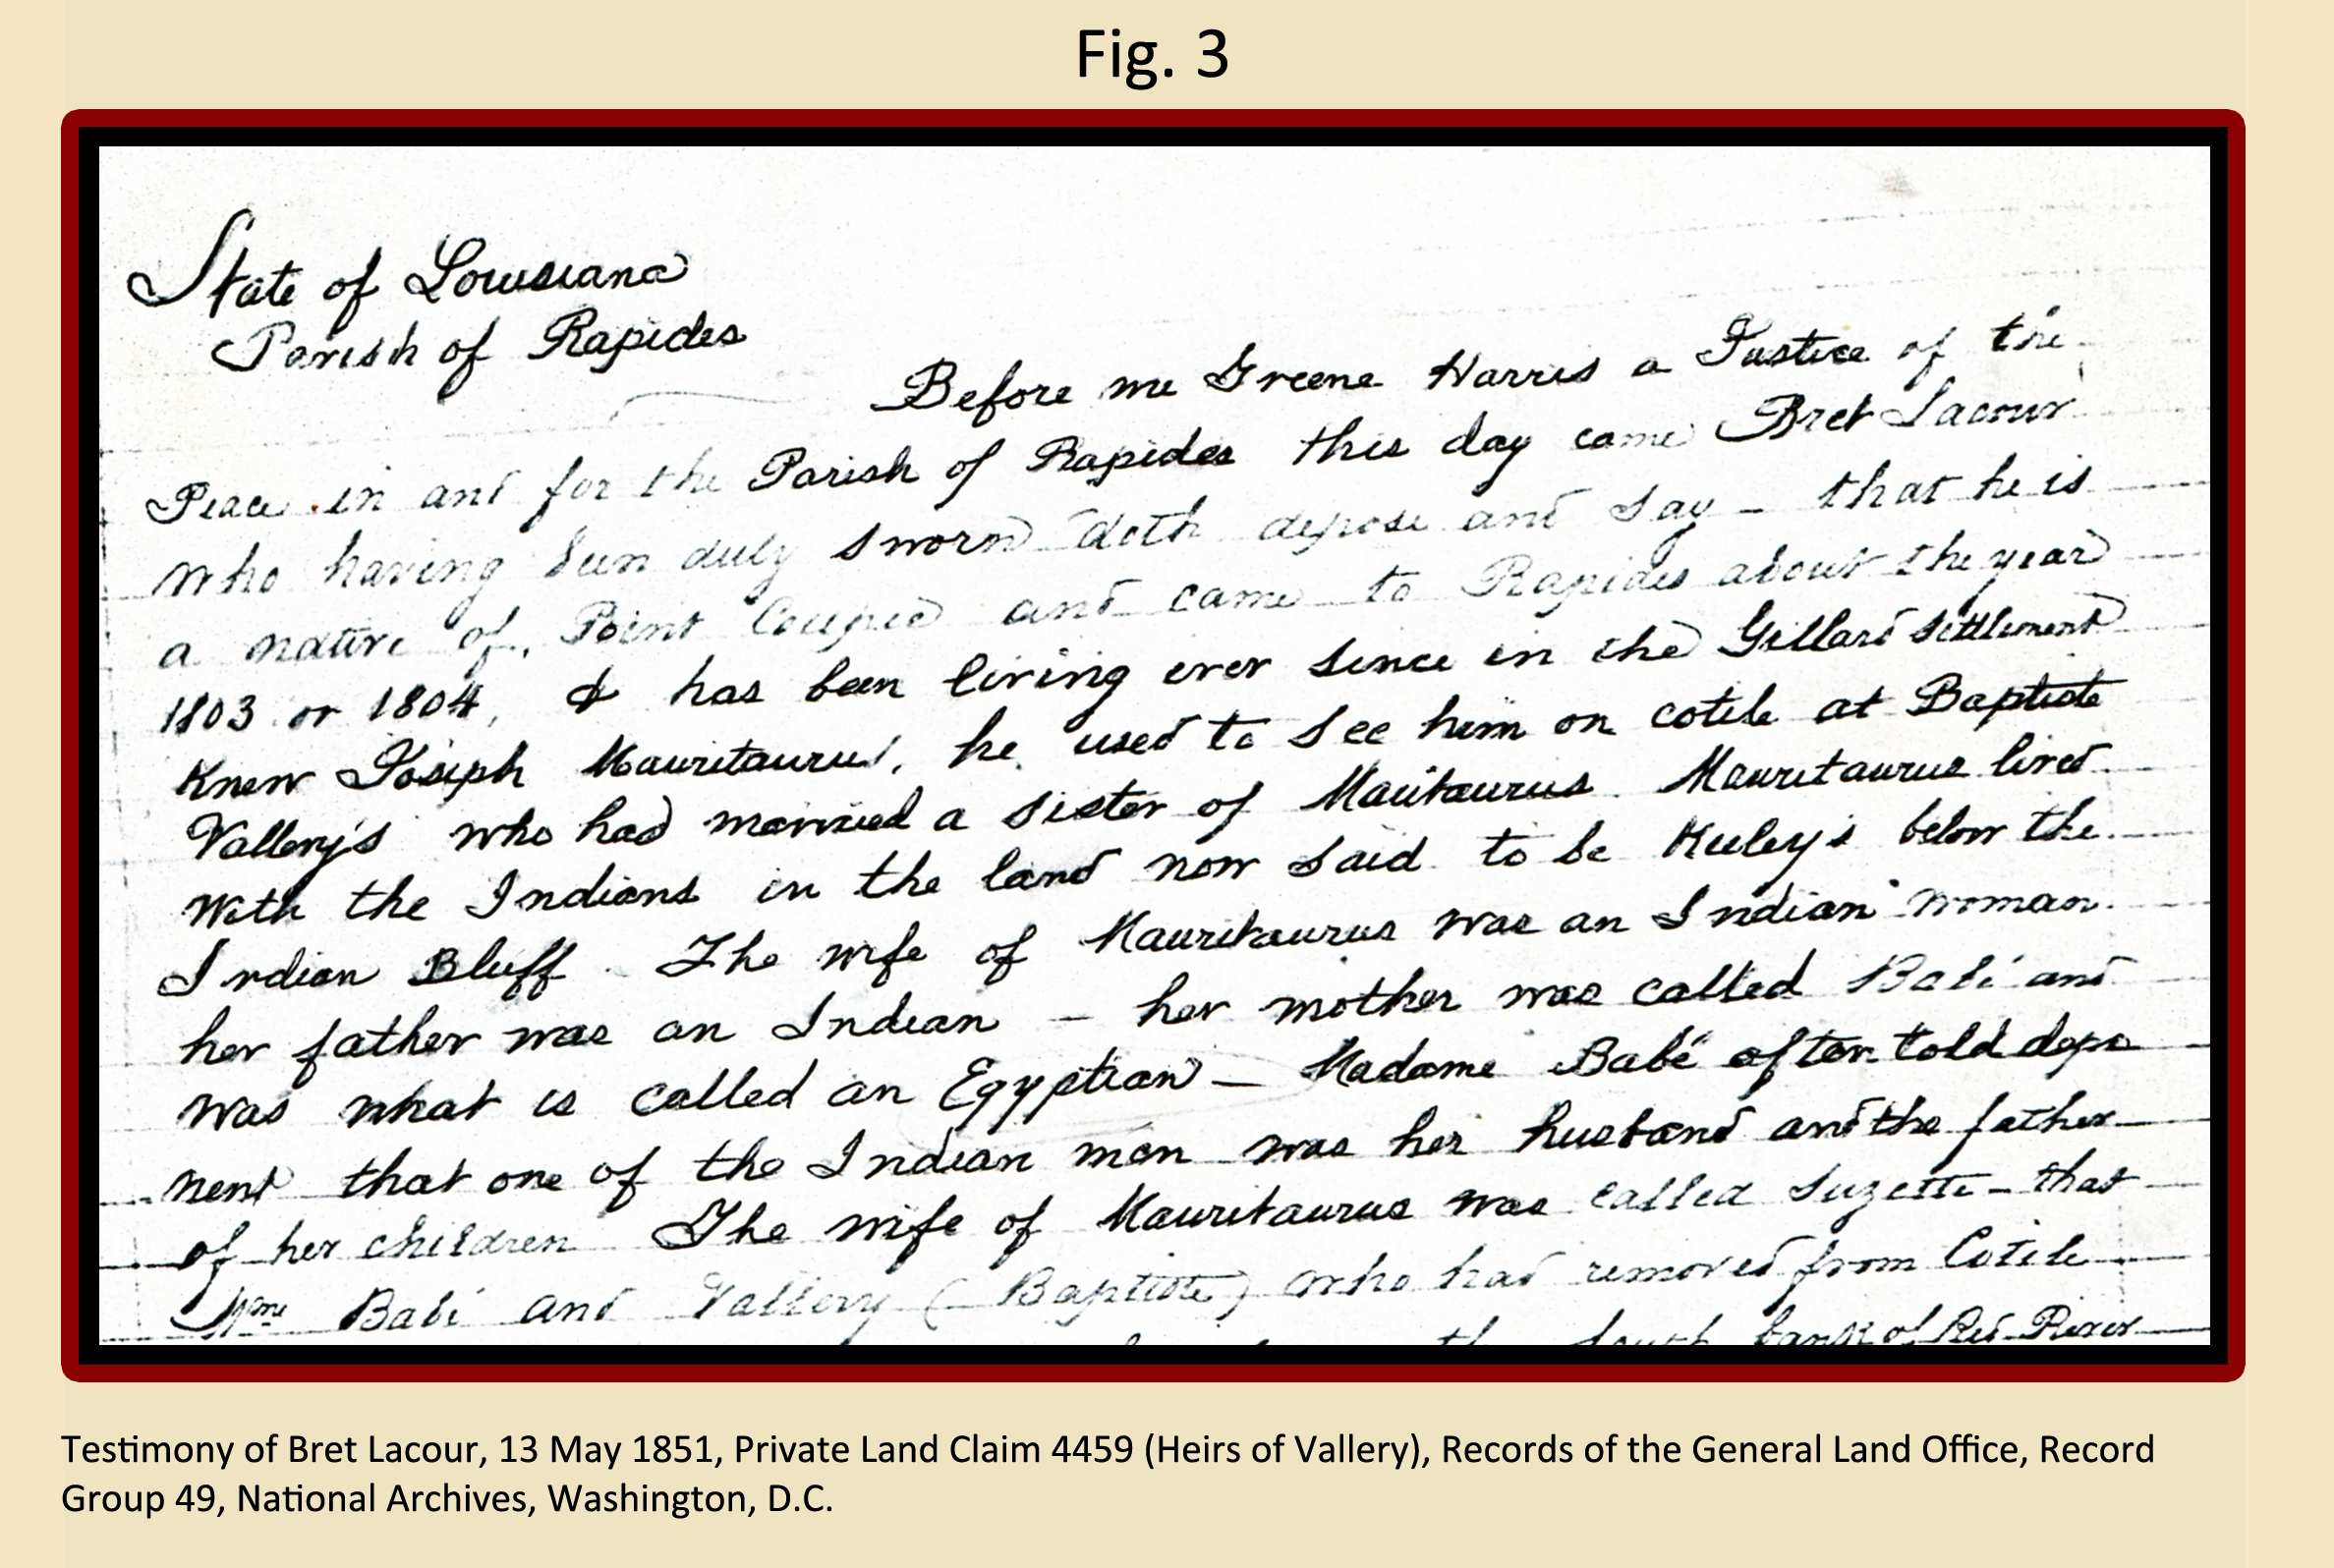 Fig. 3
State of Louisiana
Parish of Rapides
Before me Greene Harris a Justice of the
Peace in and for the Parish of Rapides this day came Bret Lacour
who having been duly sworn doth depose and say - that he is
a native of, Point Coupee and came to Rapides about the year
1803 or 1804, & has been living ever since in the Gillard Settlement
Knew Joseph Mauritaurus, he used to see him on cotile at Baptiste
Vallery's who had married a sister of Mauitaurus. Mauritaurus lived
with the Indians in the land now said to be Kuley's below the
Indian Bluff. The wife of Mauritaurus was an Indian woman.
her father was an Indian - her mother was called Babé and
was what is called an Egyptian - Madame Babé often told depo
nent that one of the Indian men was her husband and the father
of her children The wife of Mauritaurus was called Suzette - that
Mme Babé and Vallery (Baptiste) who had removed from Cotile
the South bank of Red River
Testimony of Bret Lacour, 13 May 1851, Private Land Claim 4459 (Heirs of Vallery), Records of the General Land Office, Record
Group 49, National Archives, Washington, D.C.